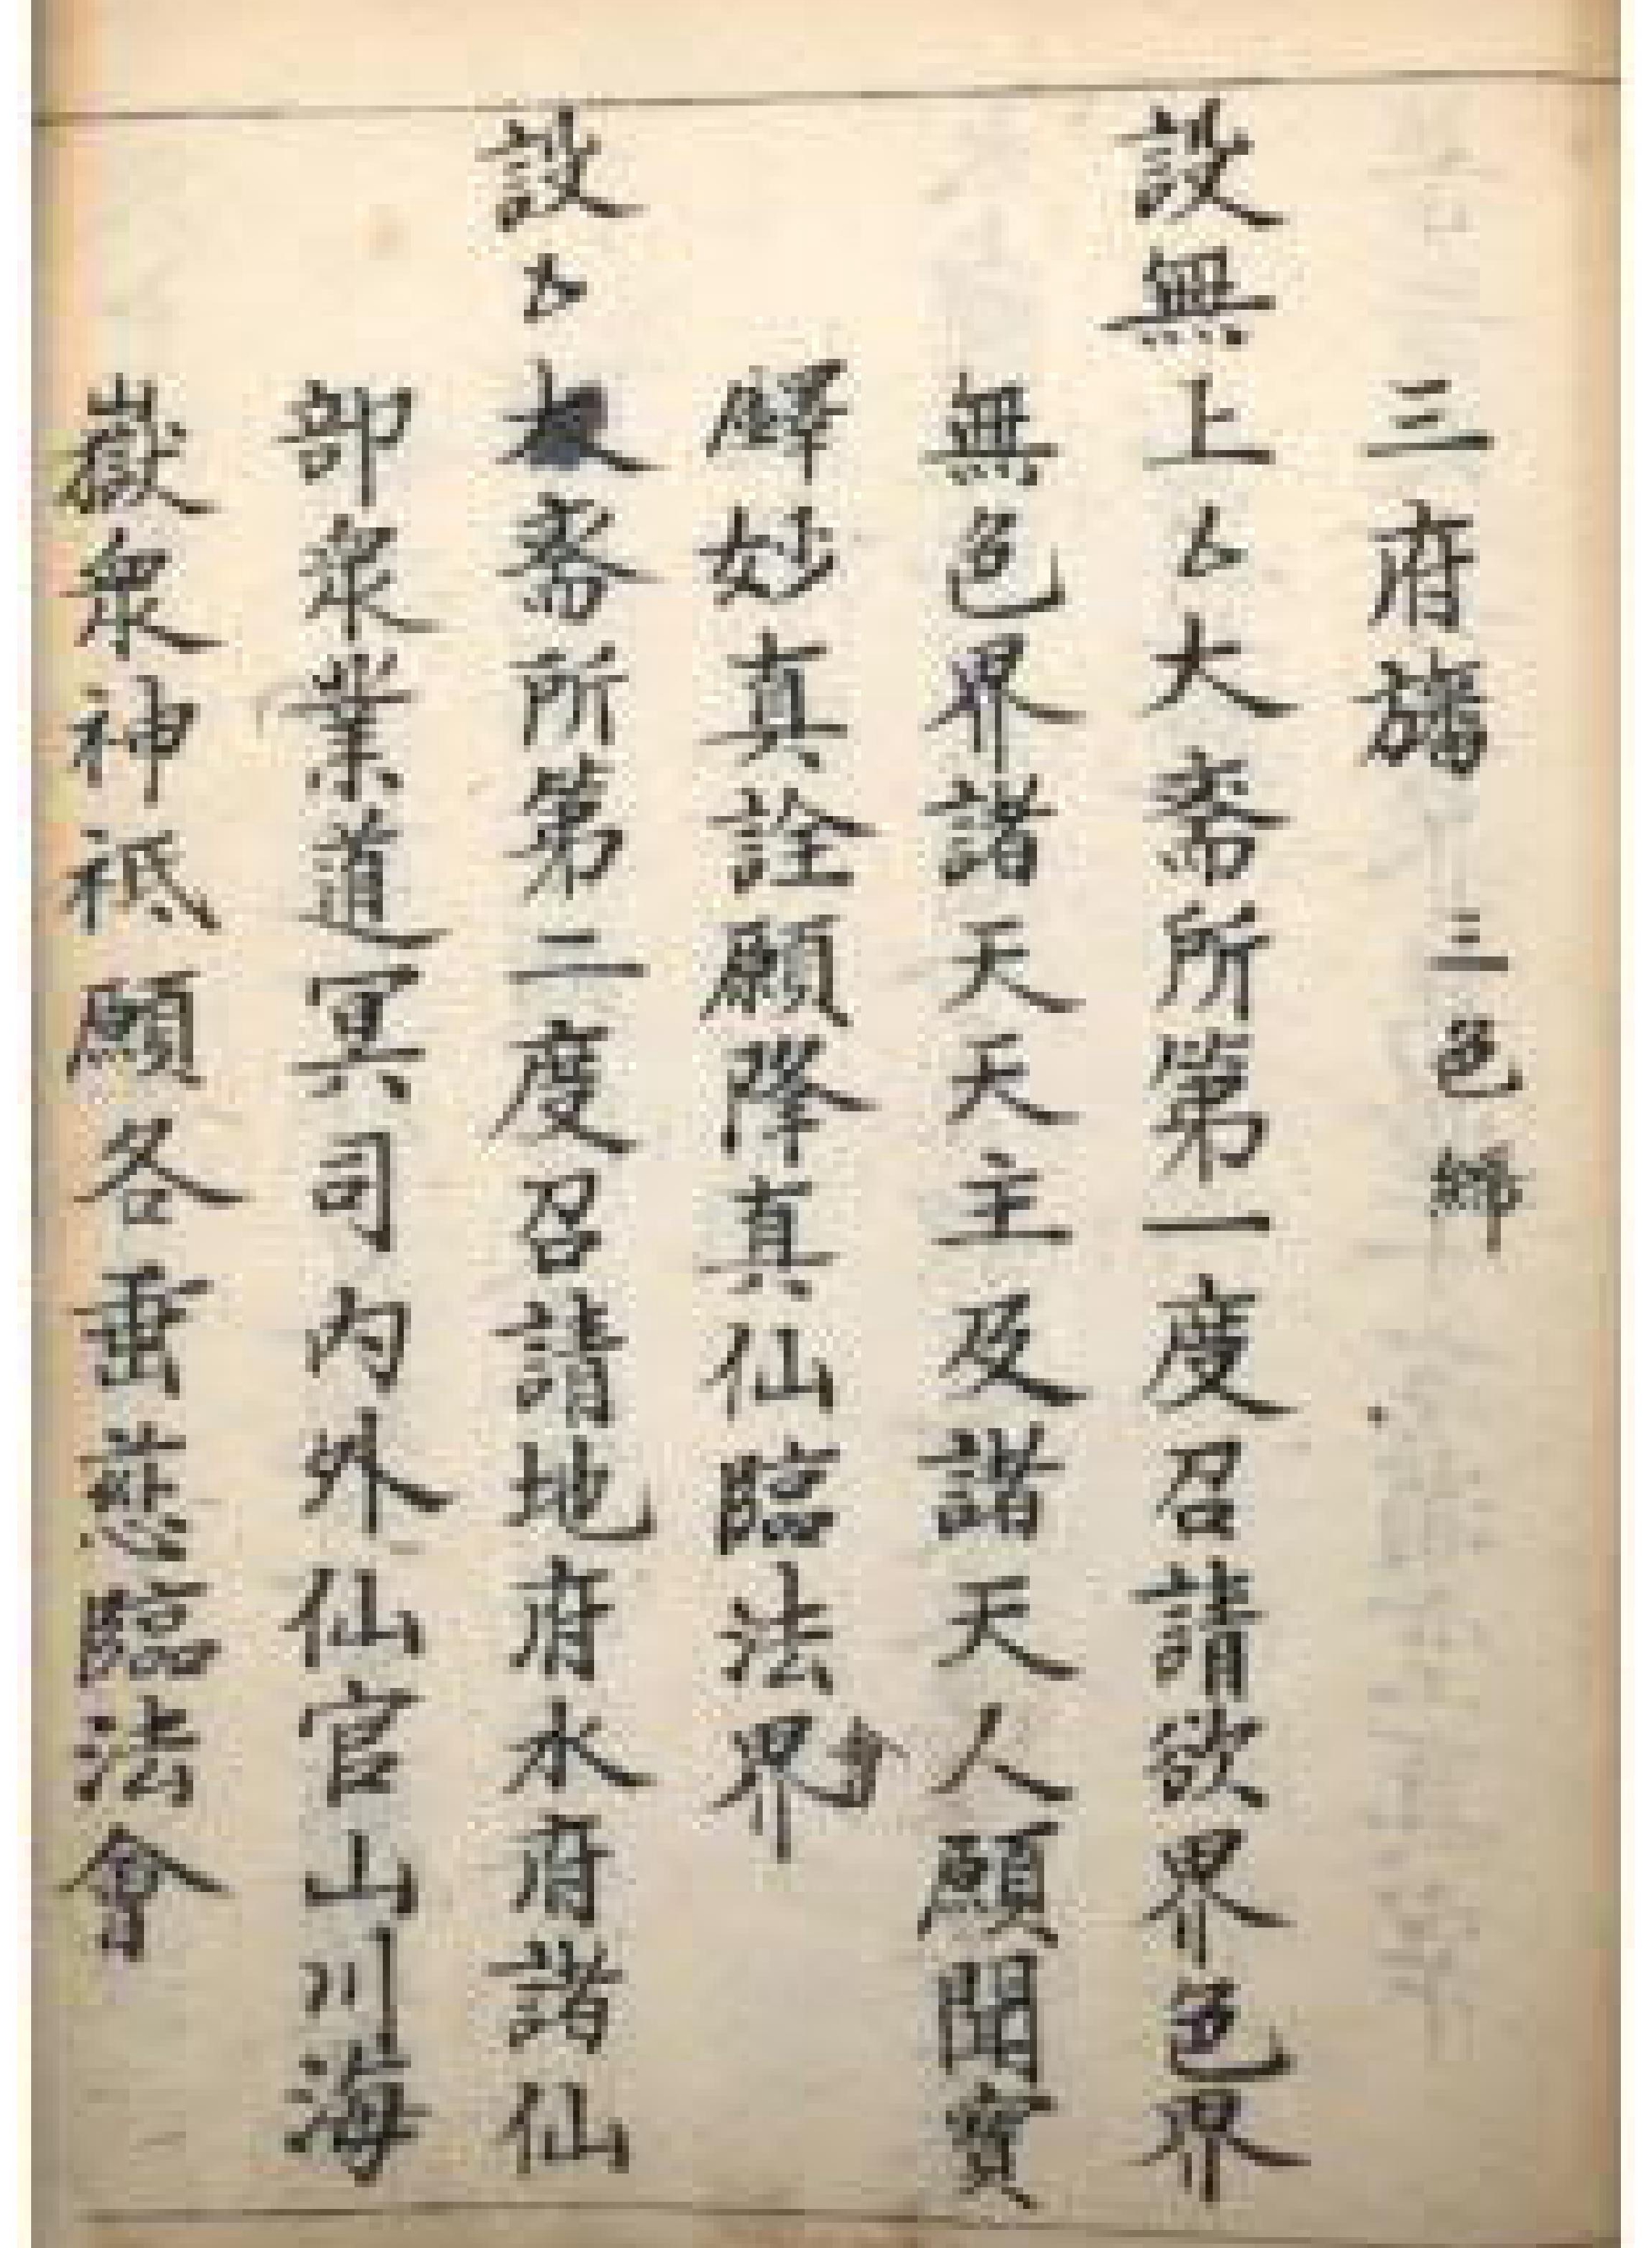 三府旛 三色
設無上大斎所第一度召請欲界色界
無色界諸天天主及諸天人願聞寶
鐸妙真詮願降真仙臨法界會
設斎所第二度召請地府水府諸仙
部眾業道冥司內外仙官山川海
嶽眾神祇願各垂慈臨法會